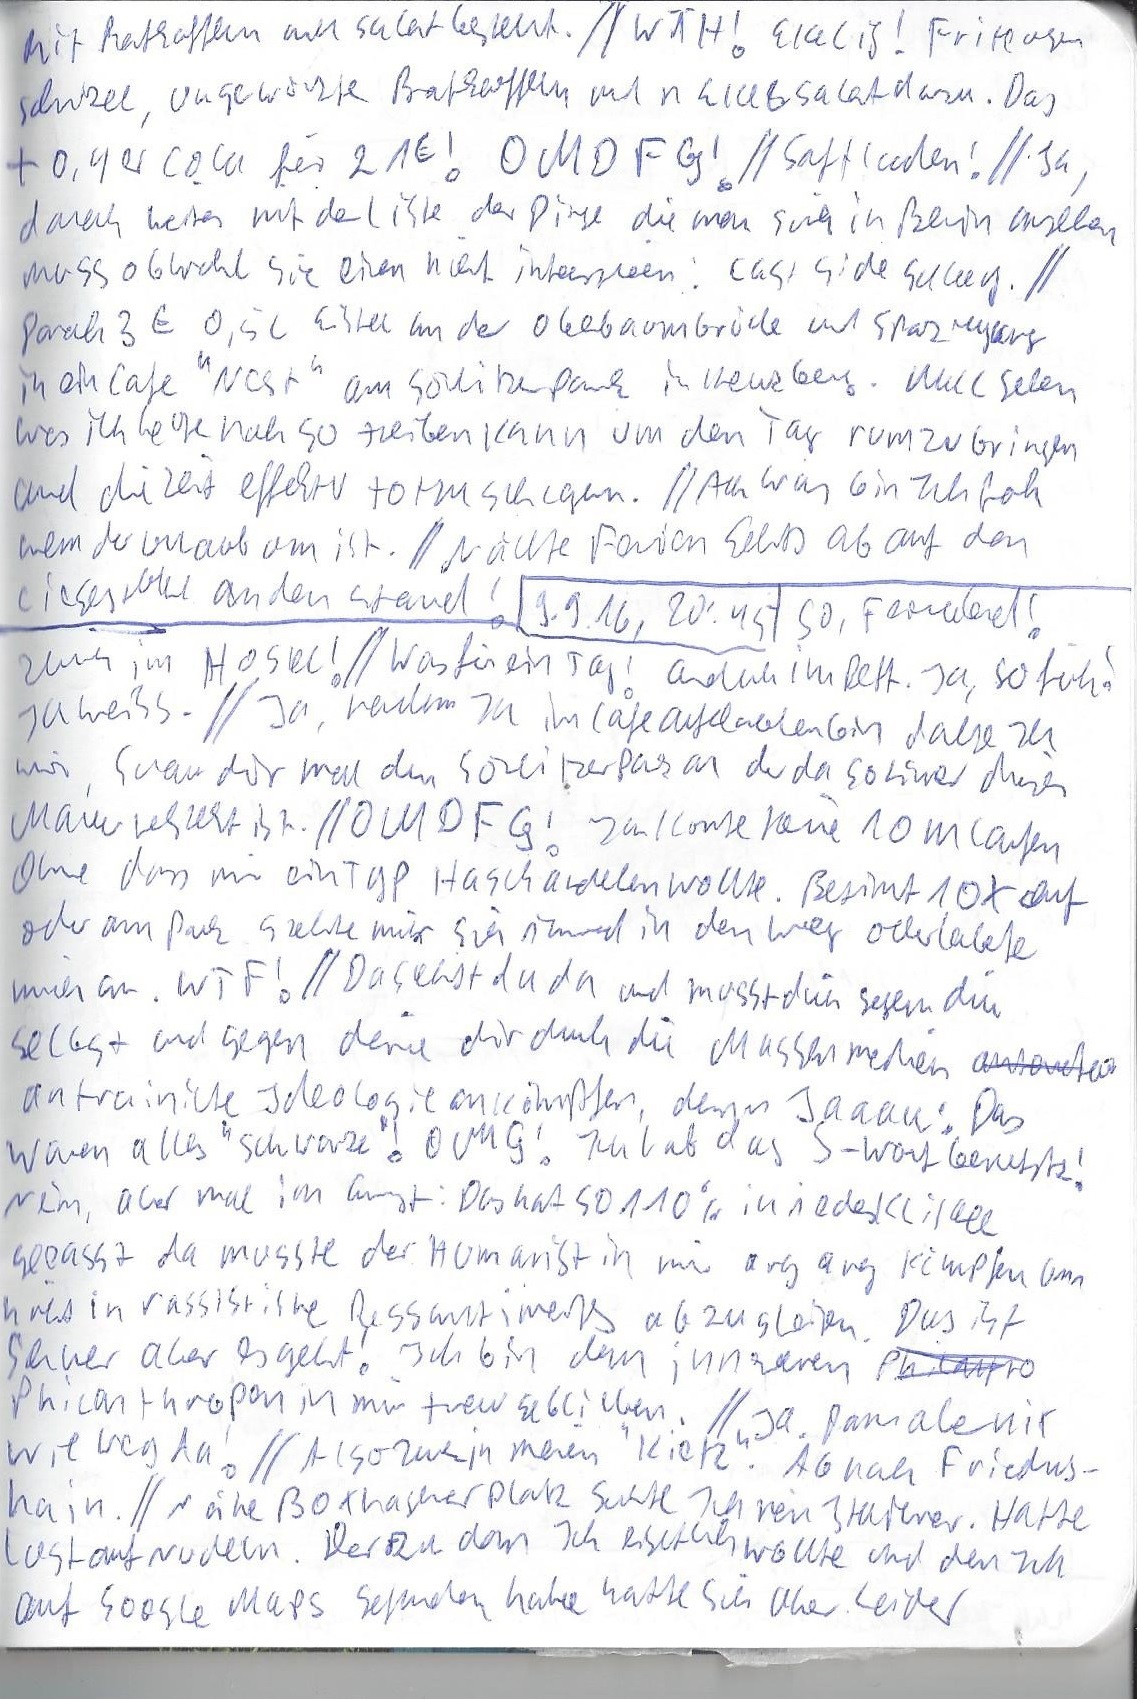 mit Bratkartoffeln und Salat bestellt. // WÄH! Ekelig! Friteusen
schnizel, ungewürzte Bratkartoffeln und n Ekelsalat dazu. Das
+ 0,4er Cola für 21€! OMDFG! // Saftladen! // Ja,
danach weiter mit der Liste der Dinge die man sich in Berlin ansehen
muss obwohl sie einen nicht interessieren: East Side Gallery. //
Danach 3 € 0,5L Eistee an der Oberbaumbrücke und Spaziergang
in ein Cafe "Nest" am Görlitzer Park in Kreuzberg. Mal sehen
was ich heute noch so treiben kann um den Tag rumzubringen
und die Zeit effektiv totzuschlagen. // Ach was bin Ich froh
wenn der Urlaub um ist. // Nächste Ferien gehts ab auf den
Liegestuhl an den Strand! 9.9.16, 20:45 So, Feierabend!
Zurück im Hostel! // Was für ein Tag! und Ich im Bett. Ja, so früh!
Ich weiss. // Ja, nachdem Ich im Cafe aufgeladen bin dachte Ich
mir, schau dir mal den Görlitzer Park an der da so hinter dieser
Mauer versteckt ist. // OMDFG! Ich konnte keine 10 m laufen
Ohne dass mir ein Typ Hasch andrehen wollte. Bestimmt 10x auf
oder am Park stellte mir sich jemand in den Weg oder laberte
mich an. WTF! // Da gehst du da und musst dich gegen dich
selbst und gegen deine dir durch die Massenmedien
antrainierte Ideologie ankämpfen, denn Jaaaa: Das
waren alles "Schwarze"! OMG! Ich hab das S-Wort benutzt!
Nein, aber mal im Ernst: Das hat so 110% in jedes Klischee
gepasst da musste der Humanist in mir arg arg kämpfen um
nicht in rassistische Ressentiments abzugleiten. Das ist
schwer aber es geht! Ich bin dem inneren Philantro
Philanthropen in mir treu geblieben. // Ja. Danach nix
wie weg da! // Also zurück in meinen "Kietz". Ab nach Friedrichs-
hain. // Nähe Boxhagener Platz suchte Ich nen Italiener. Hatte
Lust auf Nudeln. Der zu dem Ich eigentlich wollte und den Ich
auf Google Maps gefunden habe hatte sich aber leider